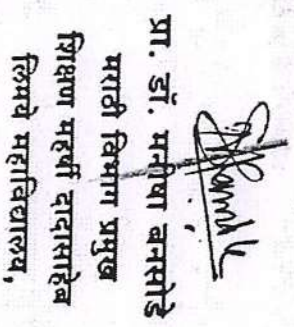 प्रा. डॉ. मनीषा बनसोडे
मराठी विभाग प्रमुख
शिक्षण महर्षी दादासाहेब
लिमये महाविद्यालय,